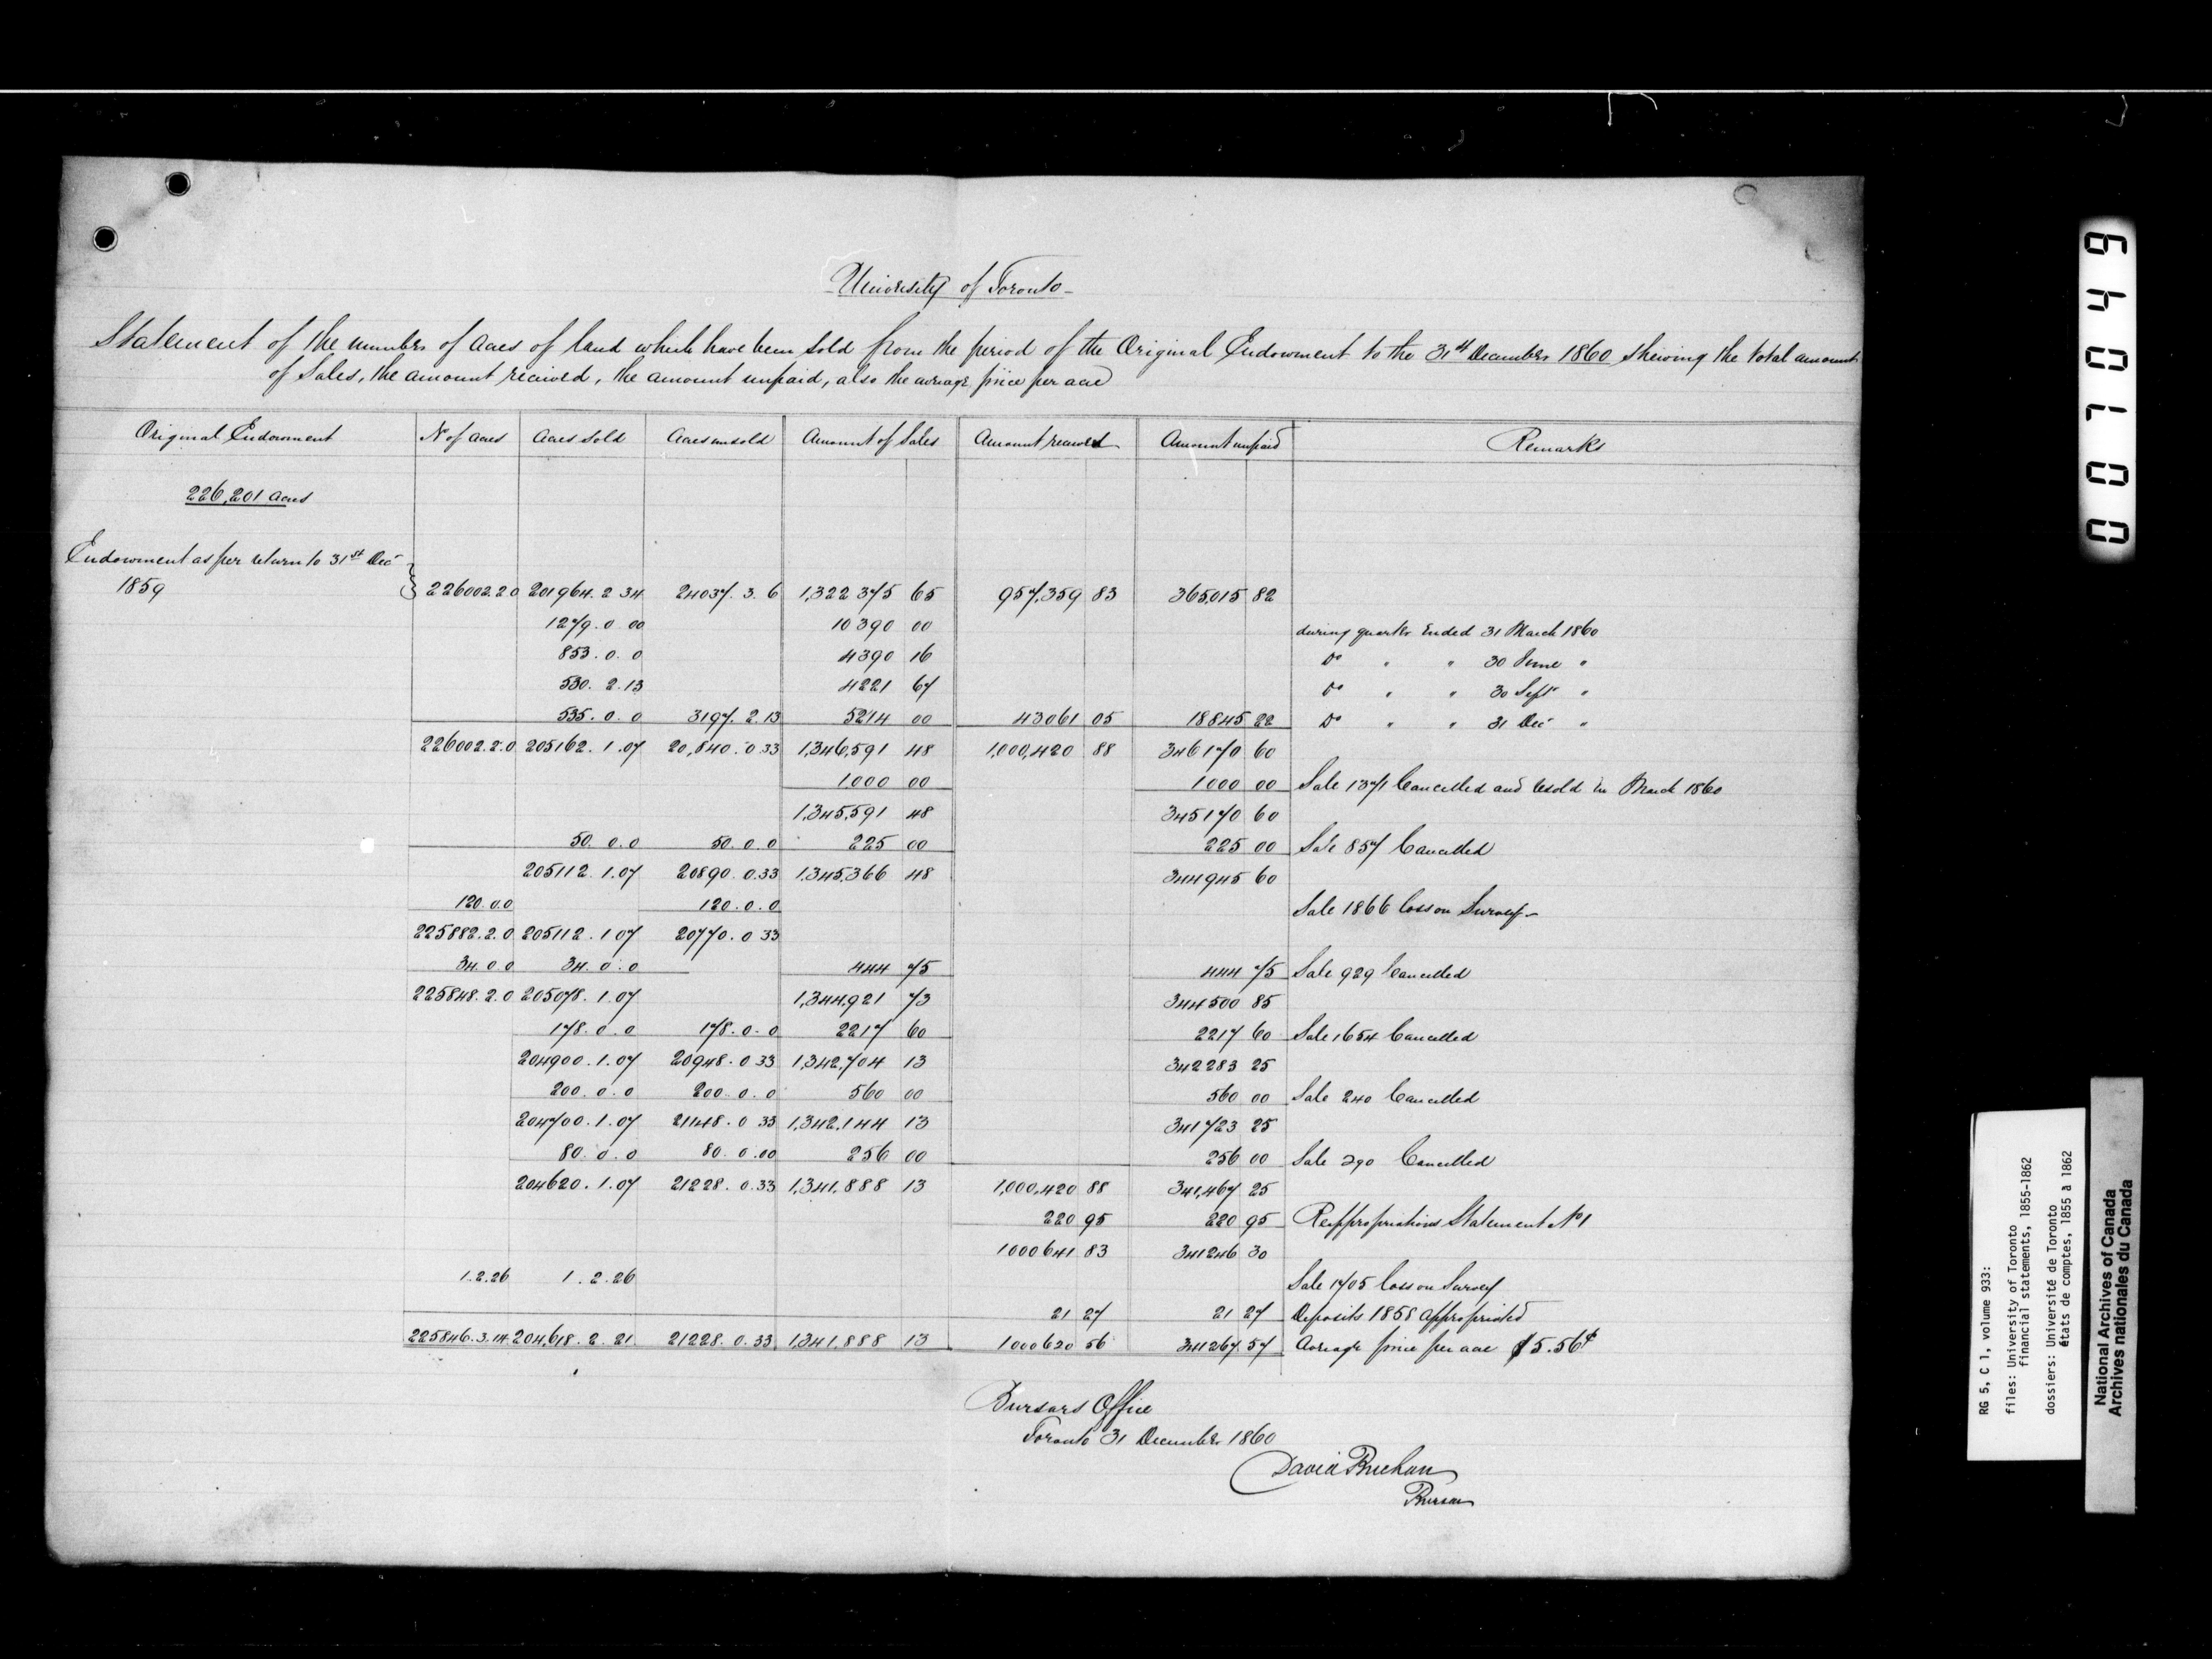 University of Toronto
Statement of the number of Acres of land which have been sold from the period of the Original Endowment to the 31st December 1860 shewing the total amount
of Sales, the amount received, the amount unpaid, also the average price per acre
Original Endowment No of Acres Acres Sold Acres unsold Amount of Sales Amount received Amount unpaid Remarks
226,201 acres
Endowment as per return to 31st Dec
1859 226002.2.0 201964.2 34 24037.3.6 1,322 375 65 957,359 83 365,015 82
1279.0.00 10 390 00 during quarter Ended 31 March 1860
853.0.0 4390 16 Do " " 30 June "
530.2.13 4221 67 Do " " 30 Sept "
535.0.0 3197.2.13 5214 00 43061 05 18845 22 Do " " 31 Dec "
226002.2.0 205162.1.07 20,840.0 33 1,346,591 48 1,000,420 88 346170 60
1000 00 1000 00 Sale 1371 Cancelled and resold in March 1860
1,345,591 48 345170 60
50.0.0 50.0.0 225 00 225 00 Sale 857 Cancelled
205112.1.07 20890.0.33 1,345,366 48 344945 60
120.0.0 120.0.0 Sale 1866 loss on Survey
225882.2.0 205112.1 07 20770.0 33
34.0 0 34.0.0 444 75 444 75 Sale 929 Cancelled
225848.2.0 205078.1.07 1,344,921 73 344500 85
178.0.0 178.0.0 2217 60 2217 60 Sale 1654 Cancelled
204900.1.07 20948.0 33 1,342,704 13 342283 25
200.0.0 200.0.0 560 00 560 00 Sale 240 Cancelled
204700.1.07 21148.0 33 1,342,144 13 341723 25
80.0.0 80.0.00 256 00 256 00 Sale 290 Cancelled
204620.1.07 21228.0.33 1,341,888 13 1,000,420 88 341,467 25
220 95 220 95 Reappropriations Statement No 1
1000641 83 341246 30
1.2.26 1.2.26 Sale 1705 loss on Survey
21 27 21 27 Deposits 1858 appropriated
225846.3.14 204,618.2.21 21228.0.33 1,341,888 13 1000620 56 341267 57 Average price per acre $5.56¢
Bursars Office
Toronto 31 December 1860
David Buchan
Bursar
0 0 1 0 4 9
RG 5, C 1, volume 933:
files: University of Toronto
financial statements, 1855-1862
dossiers: Université de Toronto
états de comptes, 1855 à 1862
National Archives of Canada
Archives nationales du Canada